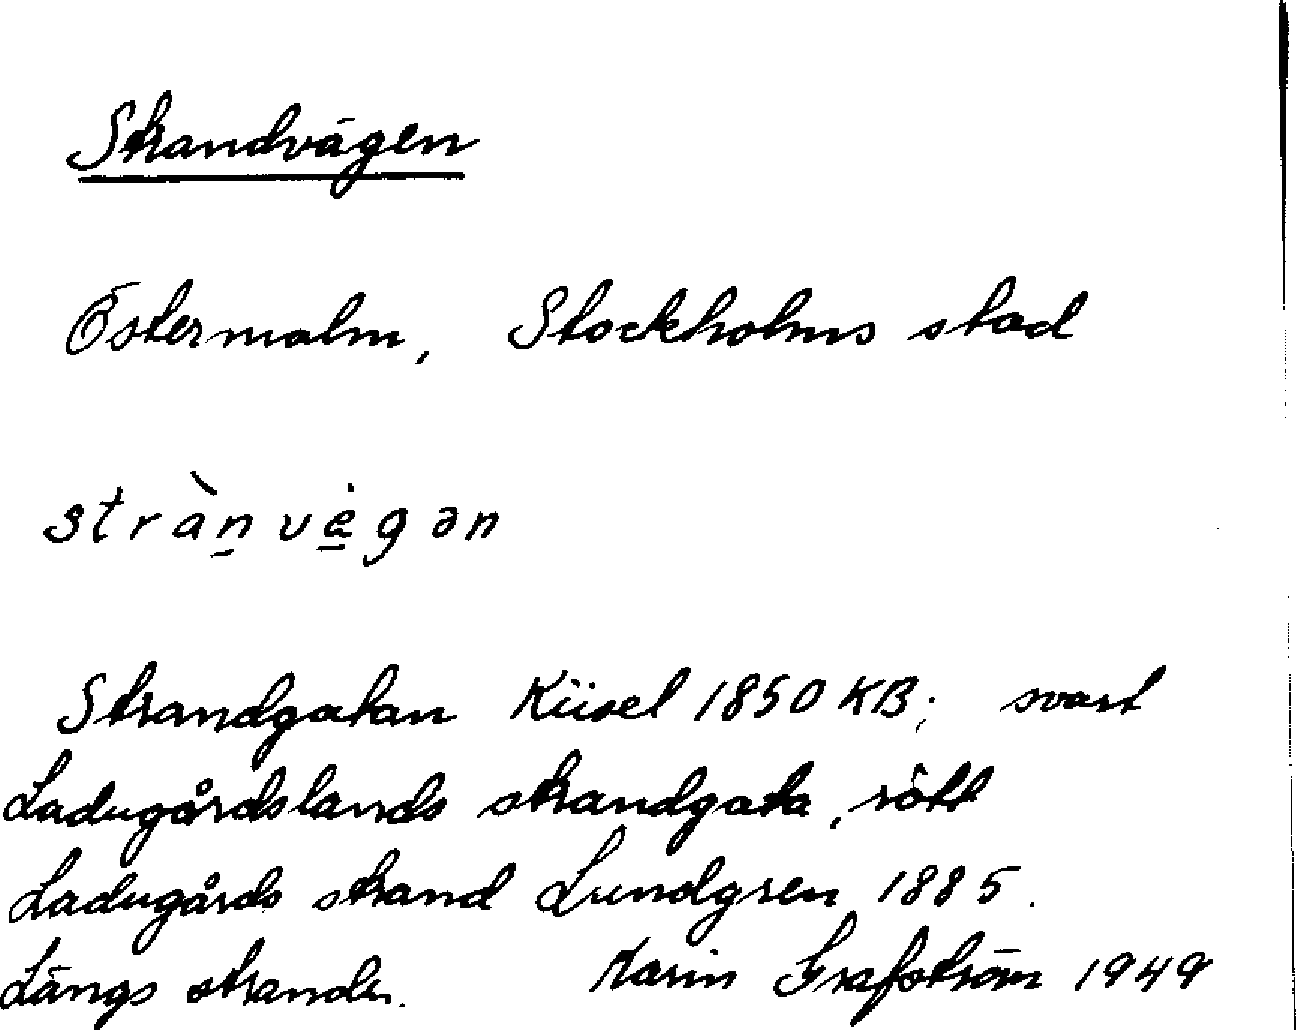 Strandvägen
Östermalm, Stockholms stad
stràn̲vè̲gən
Strandgatan Küsel 1850 KB; svart
Ladugårdslands strandgata, rött
Ladugårds strand Lundgren 1885.
Längs stranden. Karin Grafström 1949